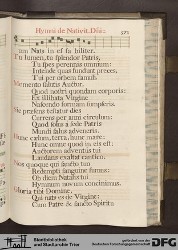 Hymni de Nativit. Dñi.
nam Nats in ef fa biliter.
Tu lumen, tu splendor Patris,
Tu spes perennis omnium:
Intende quas fundunt preces,
Tui per orbem famuli.
Memento salutis Auctor
Quod nostri quondam corporis:
Ex illibata Virgine
Nascendo formam sumpseris.
Sic præsens testatur dies
Currens per anni circulum:
Quod solus a sede Patris
Mundi salus adveneris.
Hunc cælum, terra, hunc mare:
Hunc omne quod in eis est:
Auctorem adventus tui
Laudans exultat cantico.
Nos quoque qui sancto tuo
Redempti sanguine sumus:
Ob diem Natalis tui
Hymnum novum concinimus.
Gloria tibi Domine,
Qui natus es de Virgine:
Cum Patre & sancto Spiritu
Stadtbibliothek
und Stadtarchiv Trier
gefördert von
DFG